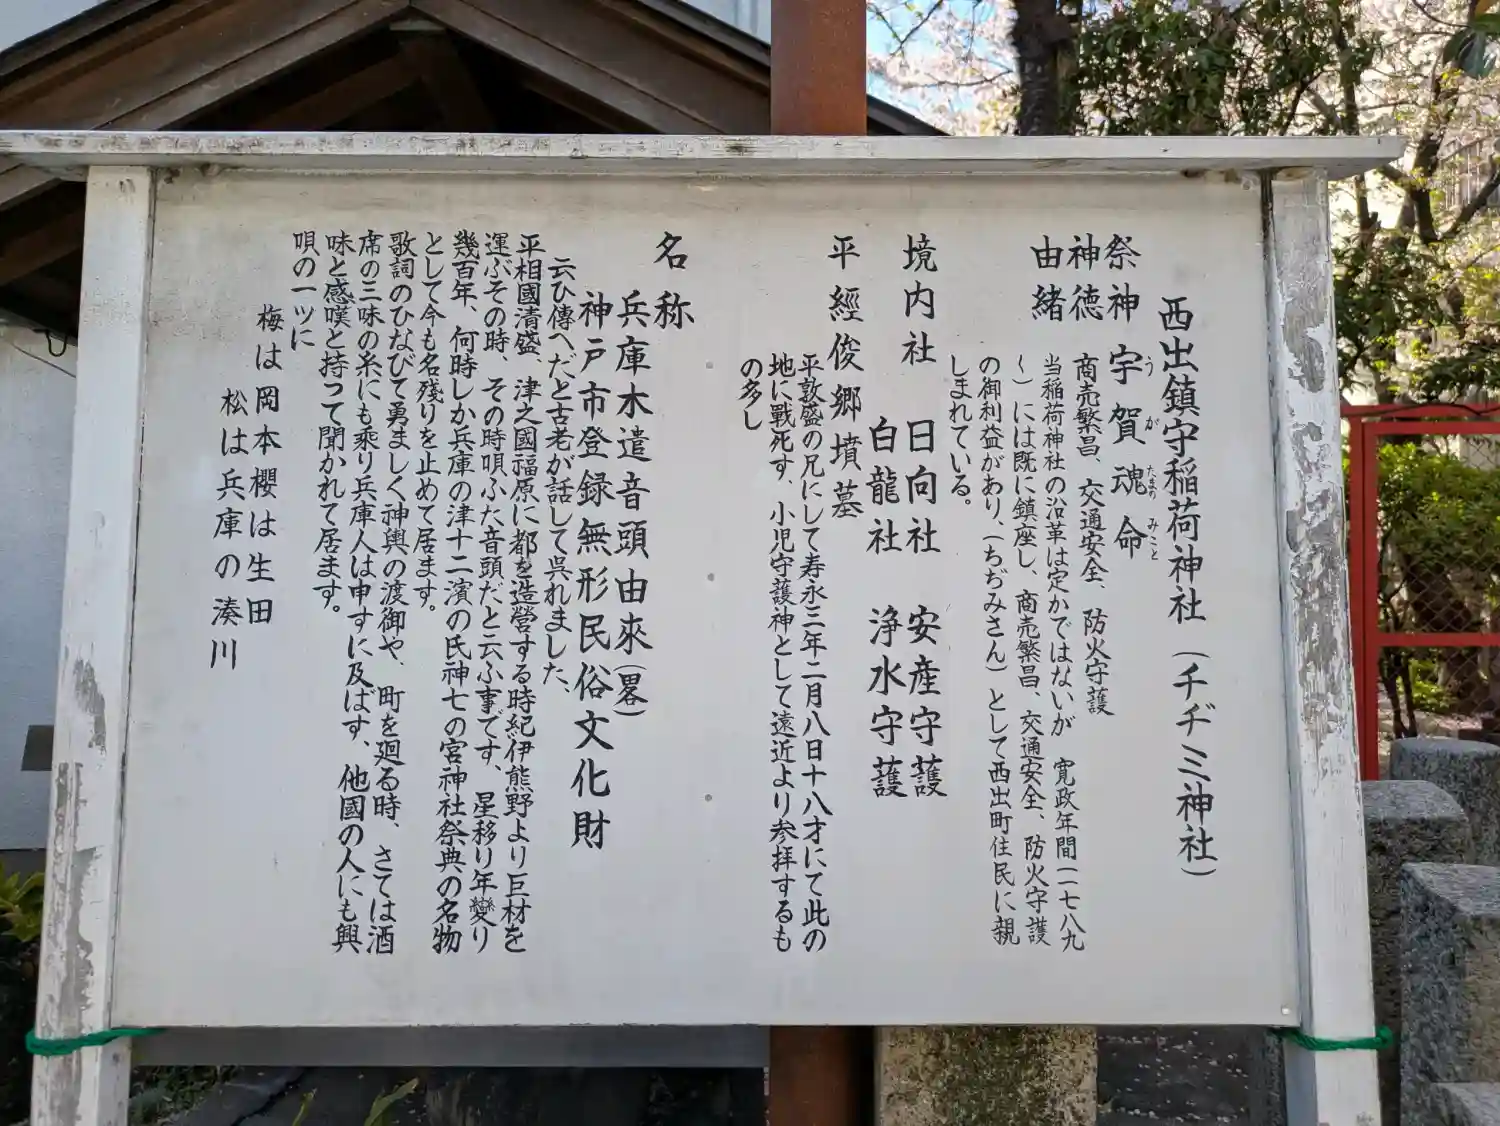 西出鎮守稲荷神社(チヂミ神社)
祭神 宇賀魂命
うがたまのみこと
神徳 商売繁昌、交通安全、防火守護
由緒 当稲荷神社の沿革は定かではないが 寛政年間(一七八九
〜)には既に鎮座し、商売繁昌、交通安全、防火守護
の御利益があり、(ちぢみさん)として西出町住民に親
しまれている。
境内社 日向社 安産守護
白龍社 浄水守護
平經俊郷墳墓
平敦盛の兄にして寿永三年二月八日十八才にて此の
地に戰死す、小児守護神として遠近より参拝するも
の多し
名称
兵庫木遣音頭由來(畧)
神戸市登録無形民俗文化財
云ひ傳へだと古老が話して呉れました、
平相國清盛、津之國福原に都を造營する時紀伊熊野より巨材を
運ぶその時、その時唄ふた音頭だと云ふ事です、星移り年變り
幾百年、何時しか兵庫の津十二濱の氏神七の宮神社祭典の名物
として今も名殘りを止めて居ます。
歌詞のひなびて勇ましく神輿の渡御や、町を廻る時、さては酒
席の三味の糸にも乘り兵庫人は申すに及ばす、他國の人にも興
味と感嘆と持って聞かれて居ます。
唄の一ツに
梅は岡本櫻は生田
松は兵庫の湊川